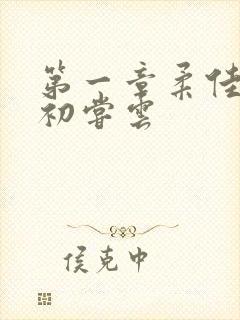 第一章柔佳
初尝雲
侯克中